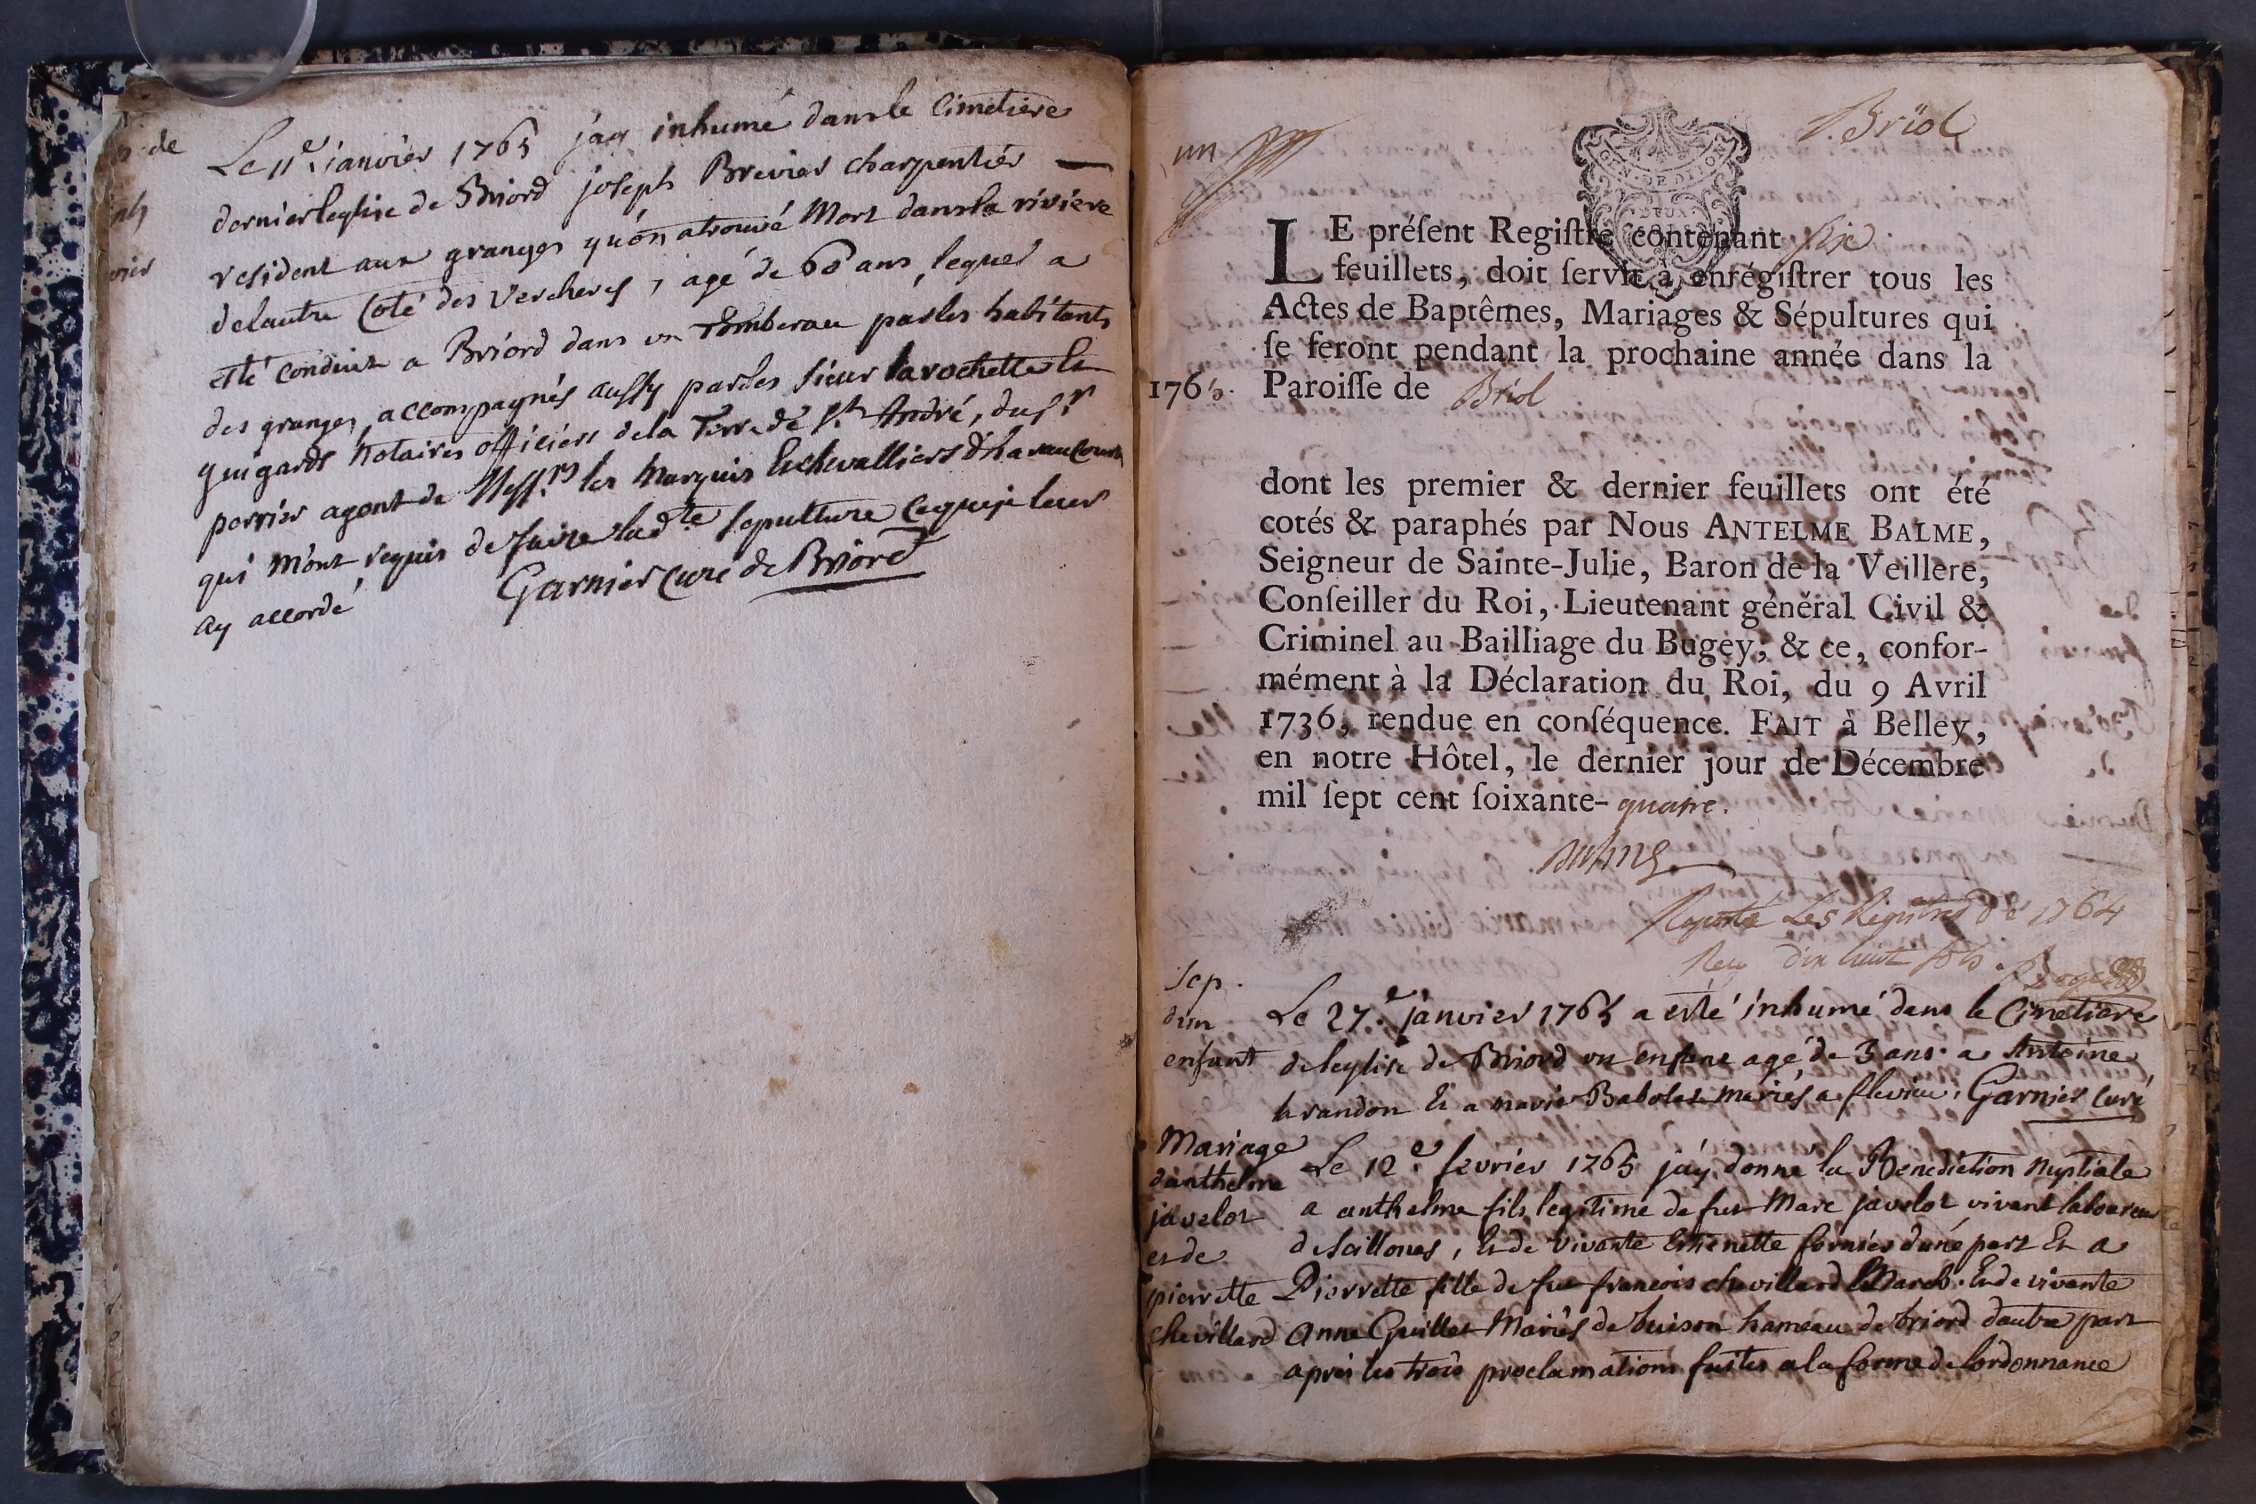 de
Le 11e. janvier 1765 jay inhumé dans le Cimetiere
dernier leglise de Briord joseph Brevier charpentier
resident aux granges quón a trouvé Mort dans la riviere
delautre Coté des Vercheres, agé de 60 ans, lequel a
etté conduit a Briord dans un tomberau par les habitants
des granges, accompagnés aussy par les sieur larochette Et
guigard Notaires officiers dela Terre de St. André, du sr
perrier agent de Messrs les Marquis Et chevalliers d'haraucourt
qui m'ont requis de faire lad.te sepulture ce que je leur
ay accordé
Garnier Curé de Briord
un
P. Briol
ON. DE DIJON
DEUX
LE préſent Regiſtre contenant six
feuillets, doit ſervir à enrégiſtrer tous les
Actes de Baptêmes, Mariages & Sépultures qui
ſe feront pendant la prochaine année dans la
1765. Paroiſſe de Briol
dont les premier & dernier feuillets ont été
cotés & paraphés par Nous ANTELME BALME,
Seigneur de Sainte-Julie, Baron de la Veillere,
Conſeiller du Roi, Lieutenant général Civil &
Criminel au Bailliage du Bugey; & ce, confor-
mément à la Déclaration du Roi, du 9 Avril
1736, rendue en conſéquence. FAIT à Belley,
en notre Hôtel, le dernier jour de Décembre
mil ſept cent ſoixante-quatre.
Balme
Raporté Les Registres de 1764
Reçu dix huit sols.
Sep.
dun
enfant
Le 27e. janvier 1765 a esté inhumé dans le Cimetiere
de leglise de Briord un enfant agé de 3 ans a Antoine
brandon Et a marie Babolat mariés a flevieu. Garnier Curé
Mariage
danthelme
javelot
et de
pierrette
chevillard
Le 12e. fevrier 1765 jáy donné la Benediction nuptiale
a anthelme fils legitime de feu Marc javelot vivant laboureur
de Saillonas, Et de vivante Etienette fornier dune part Et a
Pierrette fille de feu francois chevillard Et de vivante
anne Guillet Mariés de buison hameau de briord dautre part
aprés les trois proclamations faites a la forme de lordonnance